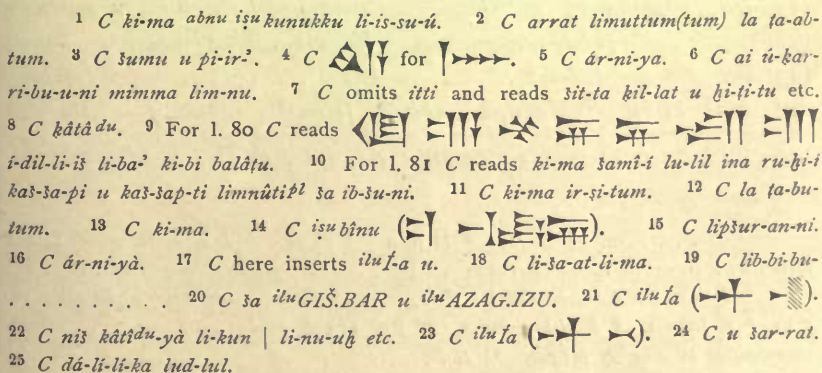 ¹ C ki-ma abnu iṣu kunukku li-is-su-ú. ² C arrat limuttum(tum) la ṭa-ab-
tum. ³ C šumu u pi-ir-ʾ. ⁴ C for ⁵ C ár-ni-ya. ⁶ C ai ú-ḳar-
ri-bu-u-ni mimma lim-nu. ⁷ C omits itti and reads šit-ta ḳil-lat u ḫi-ṭi-tu etc.
⁸ C ḳâtâ du. ⁹ For l. 80 C reads
í-dil-li-iš li-ba-ʾ ki-bi balâṭu. ¹⁰ For l. 81 C reads ki-ma šamî-í lu-lil ina ru-ḫi-i
kaš-ša-pi u kaš-šap-ti limnûti pl ša ib-šu-ni. ¹¹ C ki-ma ir-ṣi-tum. ¹² C la ṭa-bu-
tum. ¹³ C ki-ma. ¹⁴ C iṣu bînu ( ). ¹⁵ C lipšur-an-ni.
¹⁶ C ár-ni-yà. ¹⁷ C here inserts ilu Í-a u. ¹⁸ C li-ša-at-li-ma. ¹⁹ C lib-bi-bu-
. . . . . . . . . . . ²⁰ C ša ilu GIŠ.BAR u ilu AZAG.IZU. ²¹ C ilu Ía ( ).
²² C niš ḳâtî du-yà li-kun | li-nu-uḫ etc. ²³ C ilu Ía ( ). ²⁴ C u šar-rat.
²⁵ C dá-lí-lí-ka lud-lul.